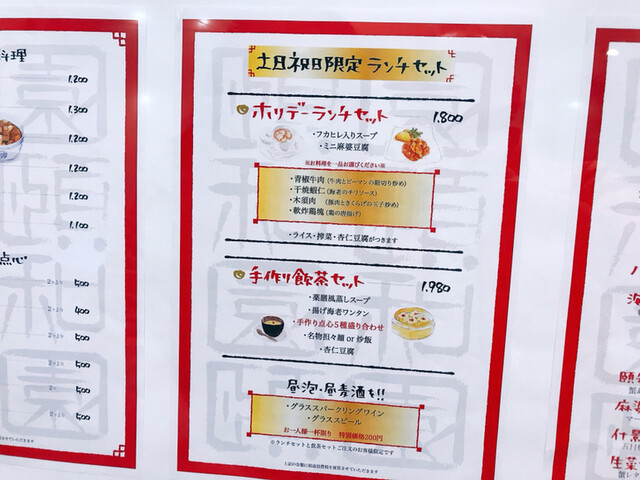 料理
1.200
1.300
1.200
1.200
1.100
点心
500
400
500
500
500
500
土日祝日限定ランチセット
ホリデーランチセット 1.800
・フカヒレ入りスープ
・ミニ麻婆豆腐
※お料理を一品お選びください※
・青椒牛肉(牛肉とピーマンの細切り炒め)
・干焼蝦仁(海老のチリソース)
・木須肉 (豚肉ときくらげの玉子炒め)
・軟炸鶏塊(鶏の唐揚げ)
・ライス・搾菜・杏仁豆腐がつきます
手作り飲茶セット 1.980
・薬膳風蒸しスープ
・揚げ海老ワンタン
・手作り点心5種盛り合わせ
・名物担々麺 or 炒飯
・杏仁豆腐
昼泡・昼麦酒を!!
・グラススパークリングワイン
・グラスビール
お一人様一杯限り 特別価格200円
※ランチセットと飲茶セットご注文のお客様限定です
上記の金額に税金を頂戴させていただきます
頤
麻
什
生菜